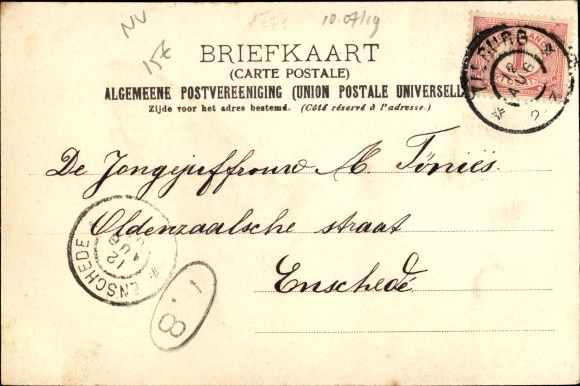 NV
15c
10.07/19
BRIEFKAART
(CARTE POSTALE)
ALGEMEENE POSTVEREENIGING (UNION POSTALE UNIVERSELL
Zijde voor het adres bestemd. (Côté réservé à l'adresse.)
TILBURG
12
AUG
2
De Jongejuffrouw M. Töniës.
Oldenzaalsche straat
Enschedé
ENSCHEDE
12
AUG
1.8